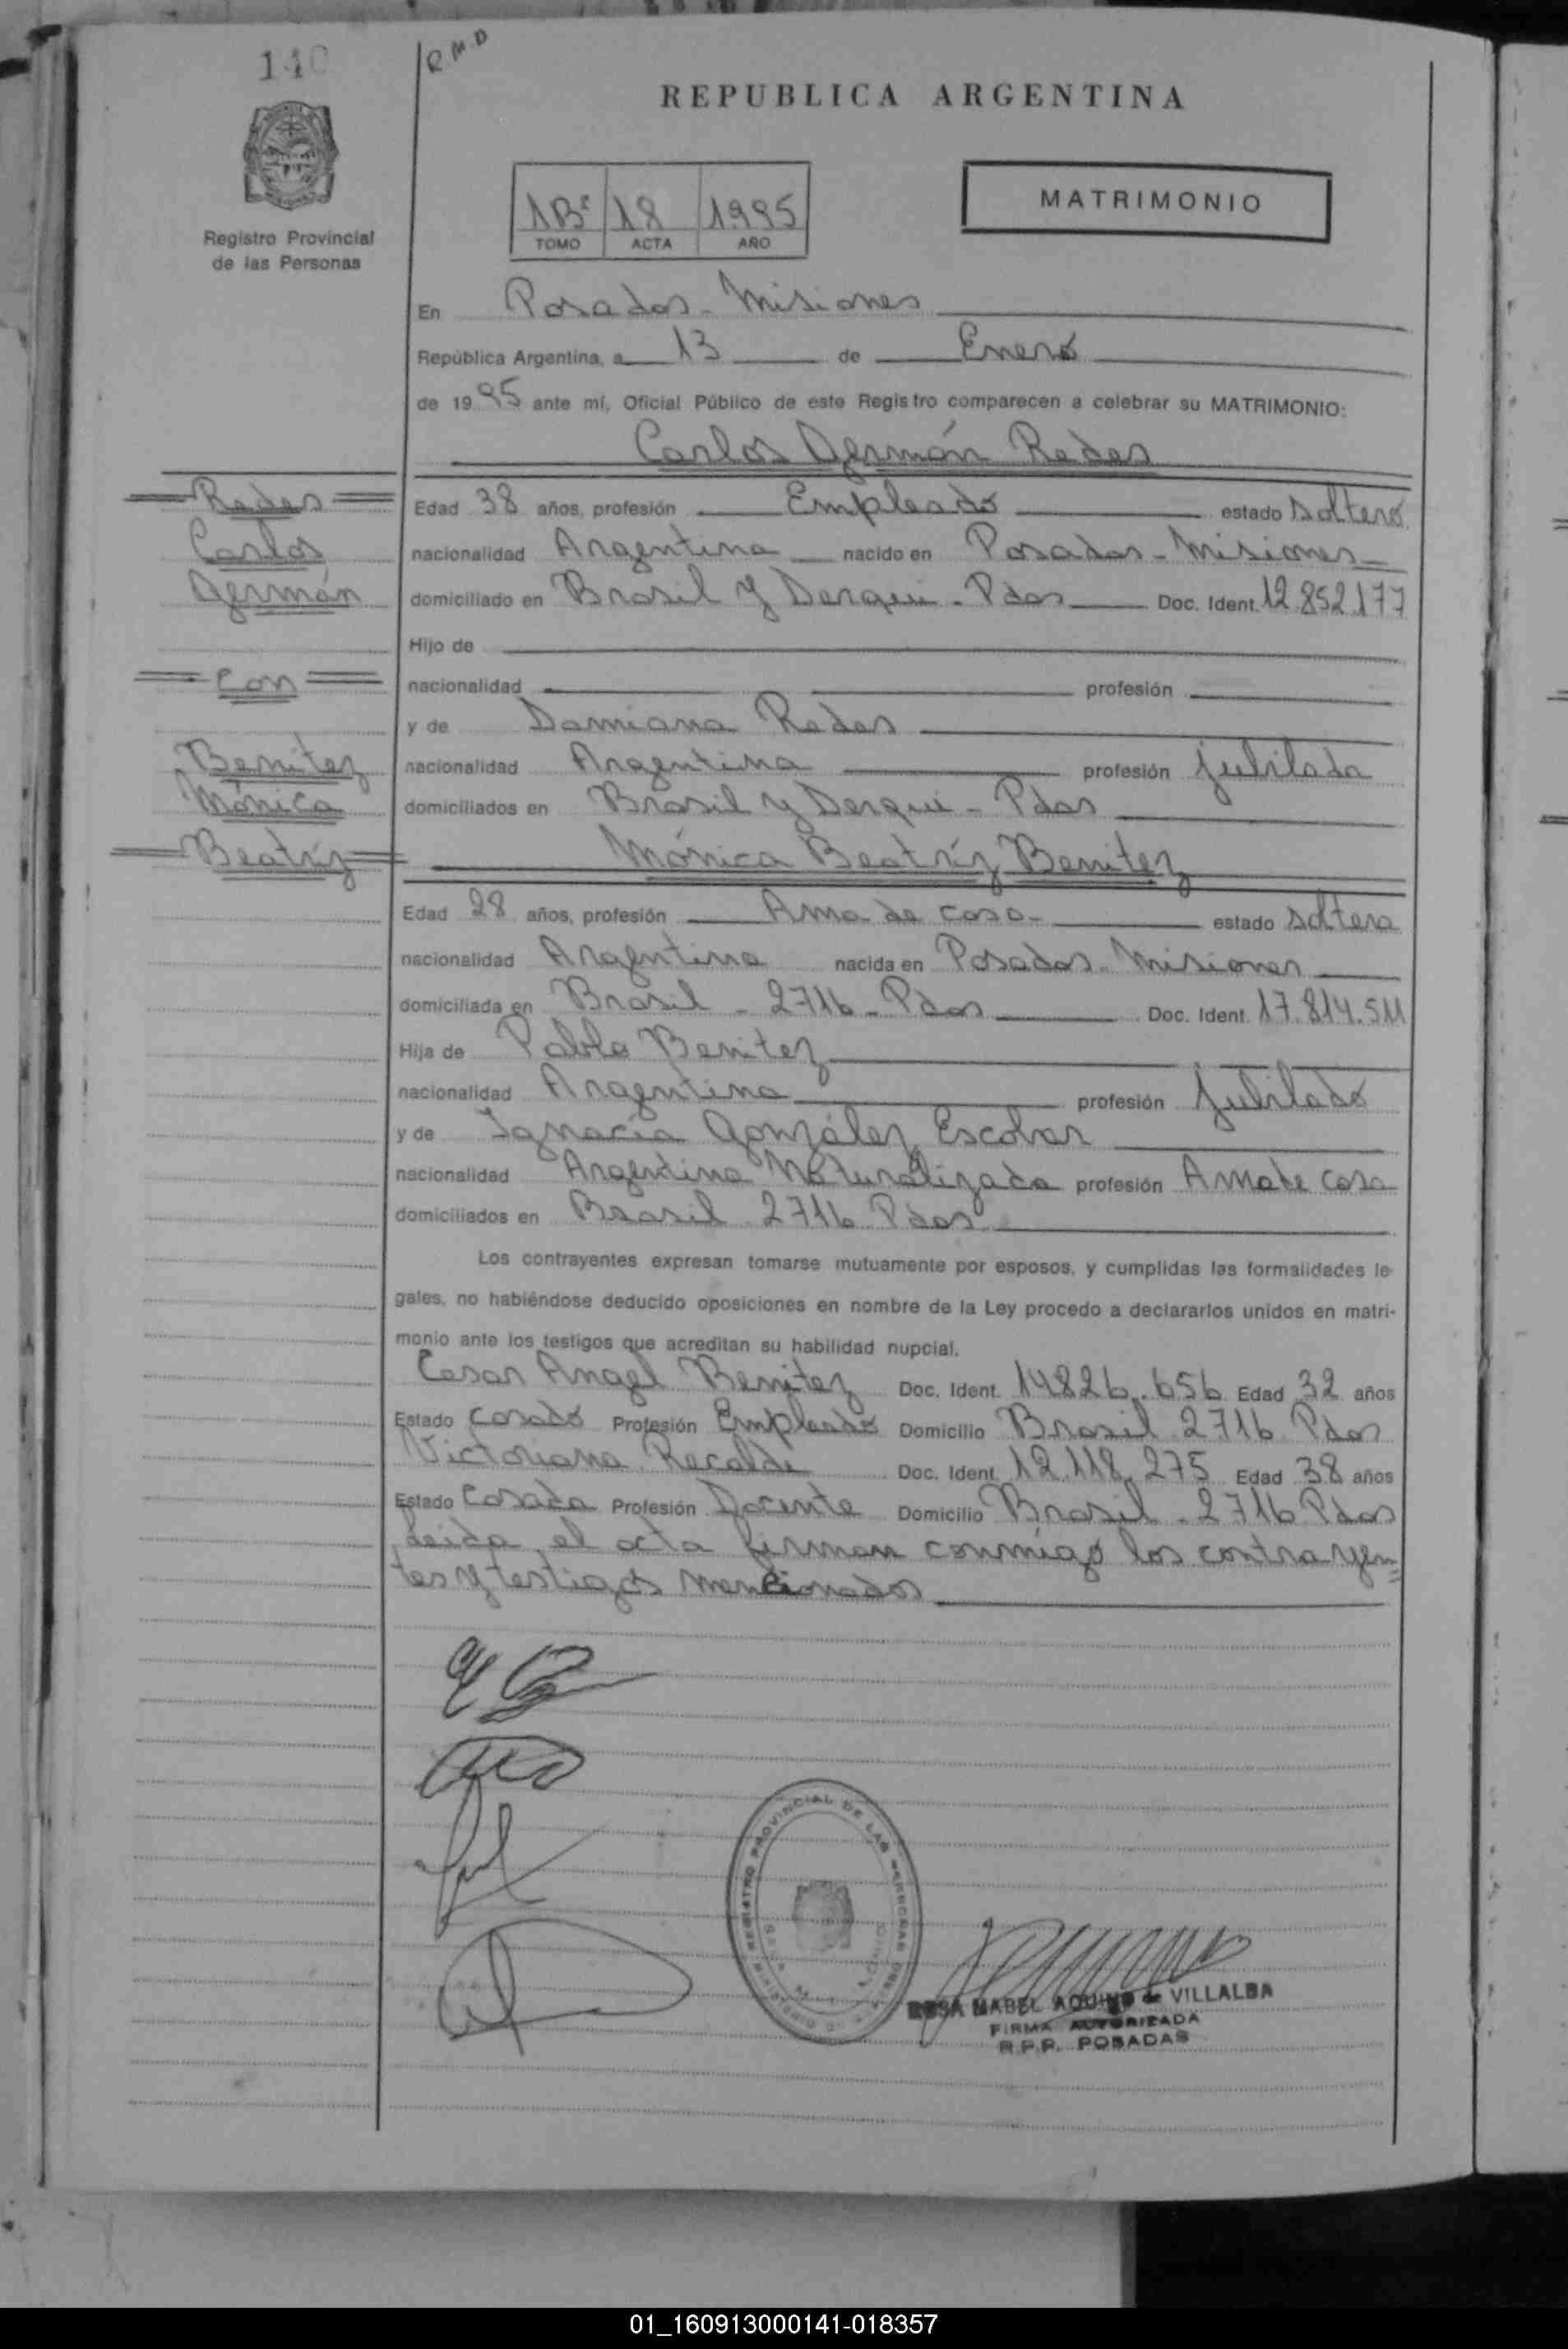 140
R.M.D
REPUBLICA ARGENTINA
1Bº 18 1995
TOMO ACTA AÑO
MATRIMONIO
Registro Provincial
de las Personas
En Posadas - Misiones
República Argentina, a 13 de Enero
de 1995 ante mí, Oficial Público de este Registro comparecen a celebrar su MATRIMONIO:
Carlos Germán Redes
Redes
Carlos
Germán
Con
Benitez
Mónica
Beatríz
Edad 38 años, profesión Empleado estado soltero
nacionalidad Argentina nacido en Posadas - Misiones
domiciliado en Brasil y Derqui - Pdas Doc. Ident. 12.852.177
Hijo de
nacionalidad profesión
y de Damiana Redes
nacionalidad Argentina profesión jubilada
domiciliados en Brasil y Derqui - Pdas
Mónica Beatríz Benitez
Edad 28 años, profesión Ama de casa estado soltera
nacionalidad Argentina nacida en Posadas - Misiones
domiciliada en Brasil - 2716 - Pdas Doc. Ident. 17.814.511
Hija de Pablo Benitez
nacionalidad Argentina profesión jubilado
y de Ignacia González Escobar
nacionalidad Argentina Naturalizada profesión Ama de casa
domiciliados en Brasil 2716 Pdas
Los contrayentes expresan tomarse mutuamente por esposos, y cumplidas las formalidades le-
gales, no habiéndose deducido oposiciones en nombre de la Ley procedo a declararlos unidos en matri-
monio ante los testigos que acreditan su habilidad nupcial.
Cesar Angel Benitez Doc. Ident. 14826.656 Edad 32 años
Estado casado Profesión Empleado Domicilio Brasil 2716 Pdas
Victoriana Recalde Doc. Ident. 12.118.275 Edad 38 años
Estado Casada Profesión Docente Domicilio Brasil - 2716 Pdas
Leida el acta firman conmigo los contrayen=
tes y testigos mencionados
REGISTRO PROVINCIAL DE LAS PERSONAS
ROSA MABEL AQUINO de VILLALBA
FIRMA AUTORIZADA
R.P.P. POSADAS
01_160913000141-018357